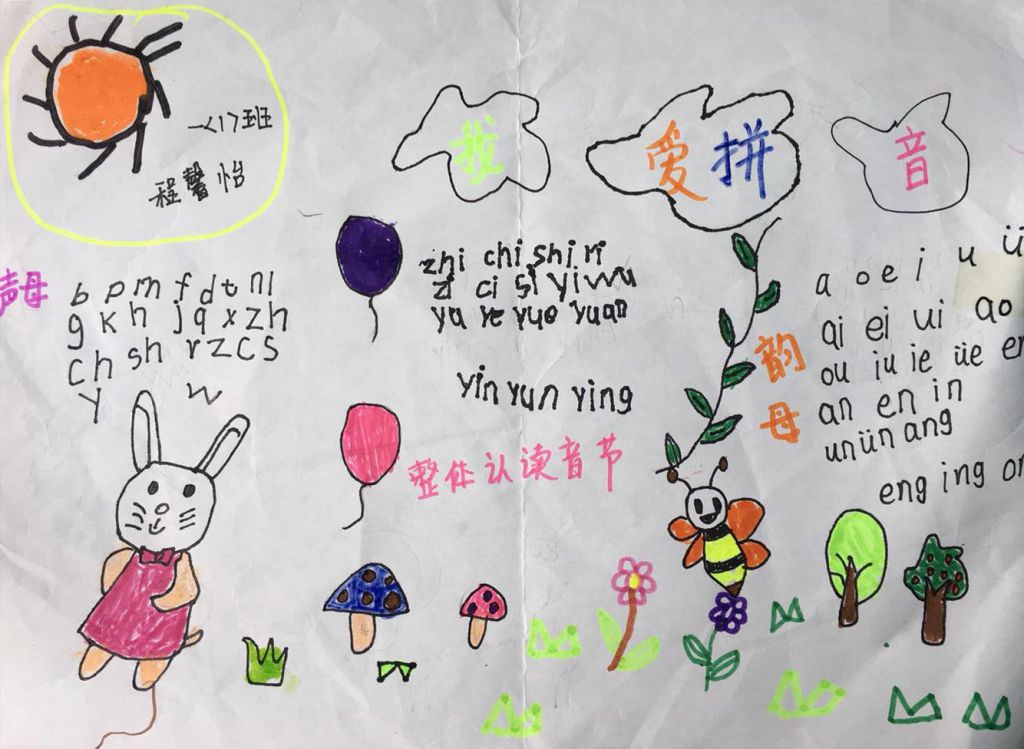 一(1)班
程馨怡
我爱拼音
声母
b p m f d t n l
g k h j q x zh
ch sh r z c s
y w
zhi chi shi ri
zi ci si yi wu
yu ye yue yuan
yin yun ying
整体认读音节
韵母
a o e i u ü
ai ei ui ao
ou iu ie üe er
an en in
un ün ang
eng ing on